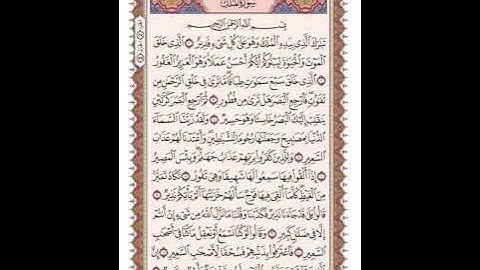 سُورَةُ المُلْكِ
بِسْمِ اللَّهِ الرَّحْمَٰنِ الرَّحِيمِ
تَبَارَكَ الَّذِي بِيَدِهِ الْمُلْكُ وَهُوَ عَلَىٰ كُلِّ شَيْءٍ قَدِيرٌ ١ الَّذِي خَلَقَ
الْمَوْتَ وَالْحَيَاةَ لِيَبْلُوَكُمْ أَيُّكُمْ أَحْسَنُ عَمَلًا وَهُوَ الْعَزِيزُ الْغَفُورُ
٢ الَّذِي خَلَقَ سَبْعَ سَمَاوَاتٍ طِبَاقًا مَّا تَرَىٰ فِي خَلْقِ الرَّحْمَٰنِ مِن
تَفَاوُتٍ فَارْجِعِ الْبَصَرَ هَلْ تَرَىٰ مِن فُطُورٍ ٣ ثُمَّ ارْجِعِ الْبَصَرَ كَرَّتَيْنِ
يَنقَلِبْ إِلَيْكَ الْبَصَرُ خَاسِئًا وَهُوَ حَسِيرٌ ٤ وَلَقَدْ زَيَّنَّا السَّمَاءَ
الدُّنْيَا بِمَصَابِيحَ وَجَعَلْنَاهَا رُجُومًا لِّلشَّيَاطِينِ وَأَعْتَدْنَا لَهُمْ عَذَابَ
السَّعِيرِ ٥ وَلِلَّذِينَ كَفَرُوا بِرَبِّهِمْ عَذَابُ جَهَنَّمَ وَبِئْسَ الْمَصِيرُ
٦ إِذَا أُلْقُوا فِيهَا سَمِعُوا لَهَا شَهِيقًا وَهِيَ تَفُورُ ٧ تَكَادُ تَمَيَّزُ
مِنَ الْغَيْظِ كُلَّمَا أُلْقِيَ فِيهَا فَوْجٌ سَأَلَهُمْ خَزَنَتُهَا أَلَمْ يَأْتِكُمْ نَذِيرٌ ٨
قَالُوا بَلَىٰ قَدْ جَاءَنَا نَذِيرٌ فَكَذَّبْنَا وَقُلْنَا مَا نَزَّلَ اللَّهُ مِن شَيْءٍ إِنْ أَنتُمْ
إِلَّا فِي ضَلَالٍ كَبِيرٍ ٩ وَقَالُوا لَوْ كُنَّا نَسْمَعُ أَوْ نَعْقِلُ مَا كُنَّا فِي أَصْحَابِ
السَّعِيرِ ١٠ فَاعْتَرَفُوا بِذَنبِهِمْ فَسُحْقًا لِّأَصْحَابِ السَّعِيرِ ١١ إِنَّ